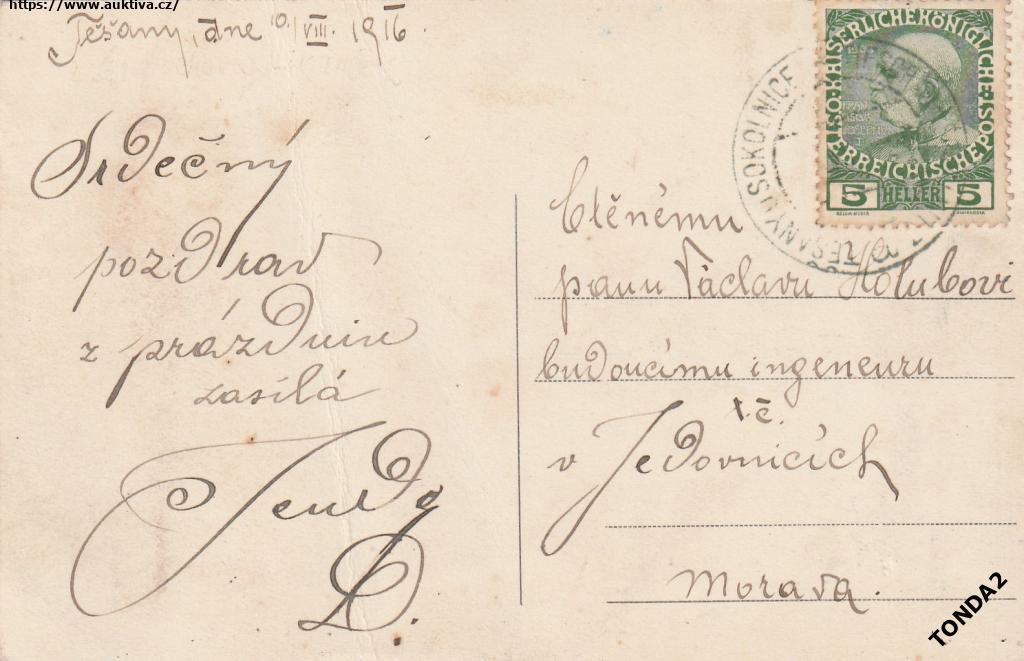 https://www.auktiva.cz/
Těšany, dne 10/VIII. 1916
Srdečný
pozdrav
z prázdnin
zasílá
Jenda
D.
Ctěnému
panu Václavu Holubovi
budoucímu ingeneuru
t.č.
v Jedovnicích
Morava.
KAISERLICHE KÖNIGLICHE
ÖSTERREICHISCHE POST
5 HELLER 5
TĚŠANY U SOKOLNICE
TONDA2